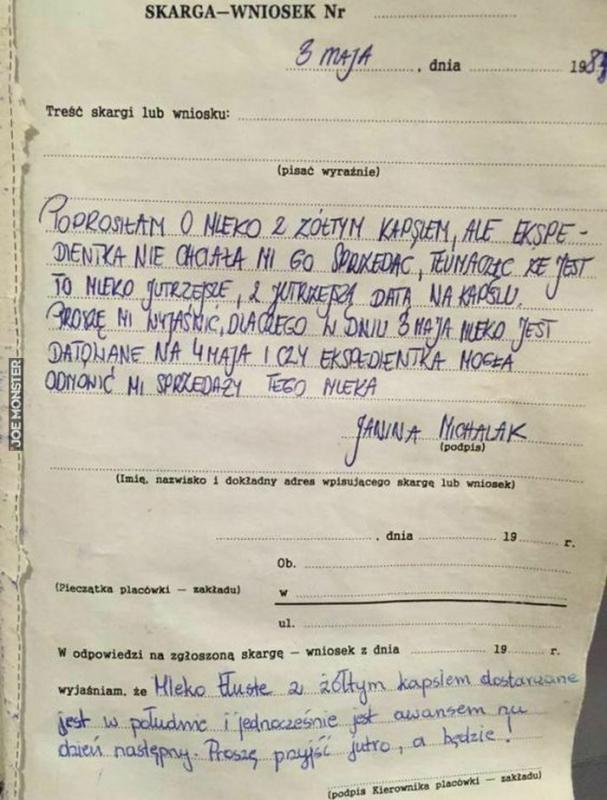 SKARGA—WNIOSEK Nr
3 MAJA, dnia 198
Treść skargi lub wniosku:
(pisać wyraźnie)
POPROSIŁAM O MLEKO Z ŻÓŁTYM KAPSLEM, ALE EKSPE-
DIENTKA NIE CHCIAŁA MI GO SPRZEDAĆ, TŁUMACZĄC ŻE JEST
TO MLEKO JUTRZEJSZE, Z JUTRZEJSZĄ DATĄ NA KAPSLU.
PROSZĘ MI WYJAŚNIĆ, DLACZEGO W DNIU 3 MAJA MLEKO JEST
DATOWANE NA 4 MAJA I CZY EKSPEDIENTKA MOGŁA
ODMÓWIĆ MI SPRZEDAŻY TEGO MLEKA
JANINA MICHALAK
(podpis)
(Imię, nazwisko i dokładny adres wpisującego skargę lub wniosek)
, dnia 19 r.
Ob.
(Pieczątka placówki — zakładu)
w
ul.
W odpowiedzi na zgłoszoną skargę — wniosek z dnia 19 r.
wyjaśniam, że Mleko tłuste z żółtym kapslem dostarczane
jest w południe i jednocześnie jest awansem na
dzień następny. Proszę przyjść jutro, a będzie!
(podpis Kierownika placówki — zakładu)
JOE MONSTER